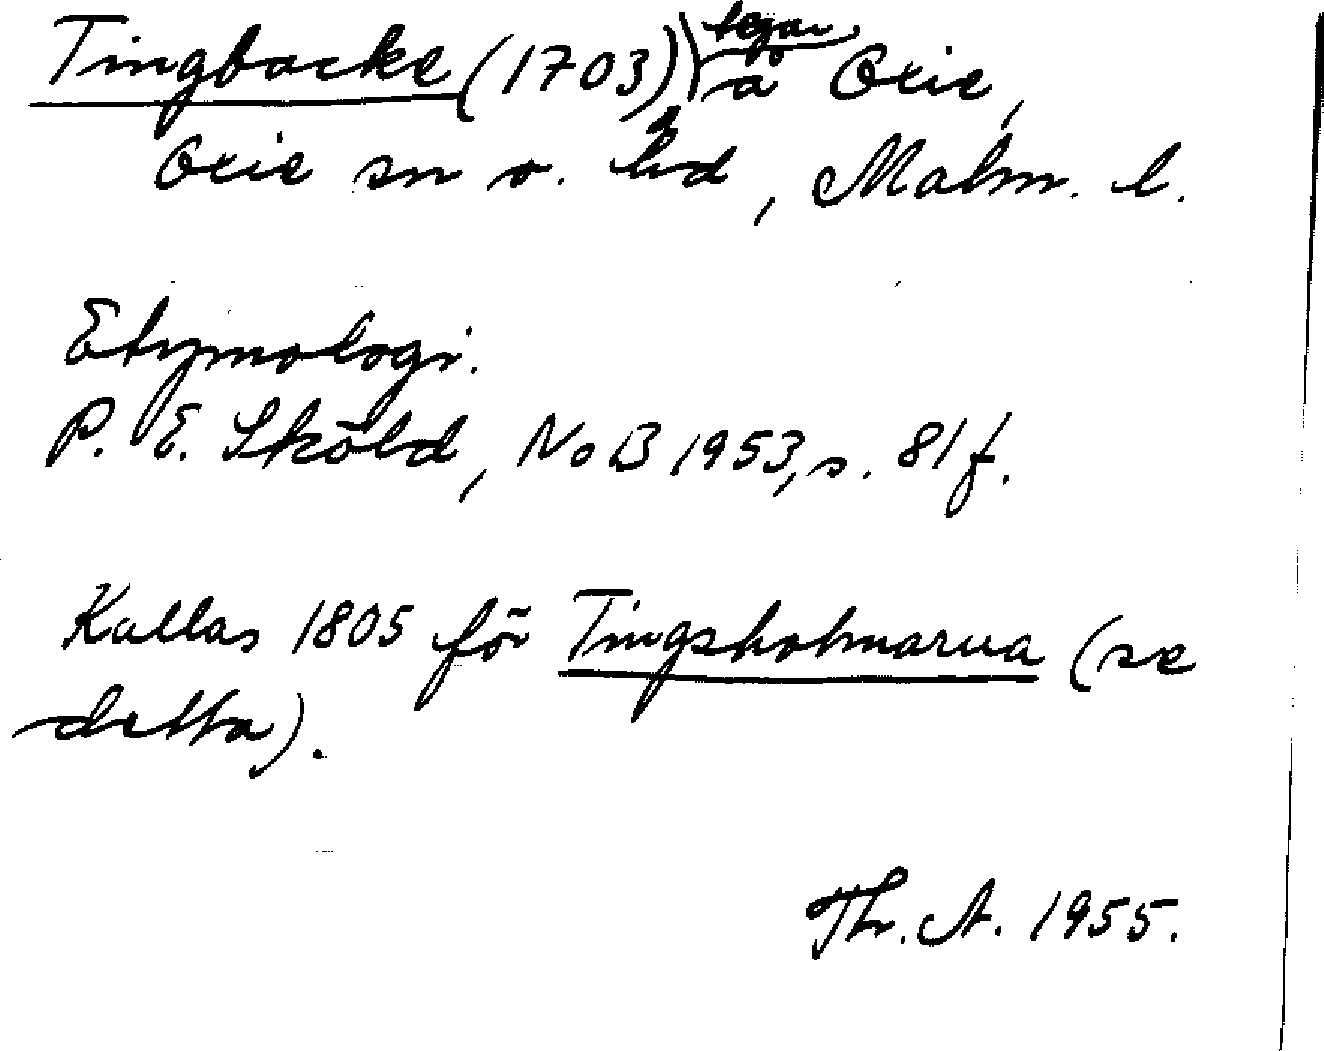 Tingbacke (1703) \legar/ å Oxie,
Oxie sn o. hd, Malm. l.
Etymologi.
P. E. Sköld, NoB 1953, s. 81 f.
Kallas 1805 för Tingsholmarna (se
detta).
Th. A. 1955.